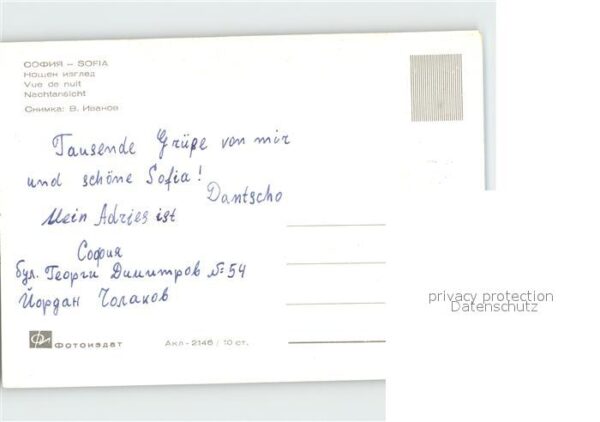 СОФИЯ – SOFIA
Нощен изглед
Vue de nuit
Nachtansicht
Снимка: В. Иванов
Tausende Grüße von mir
und schöne Sofia!
Dantscho
Mein Adries ist
София
бул. Георги Димитров № 54
Йордан Чолаков
Фотоиздат
Акл-2146 / 10 ст.
privacy protection
Datenschutz